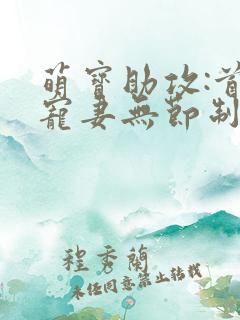 萌寶助攻:首
寵妻無節制
程秀蘭
未任同意禁止转载